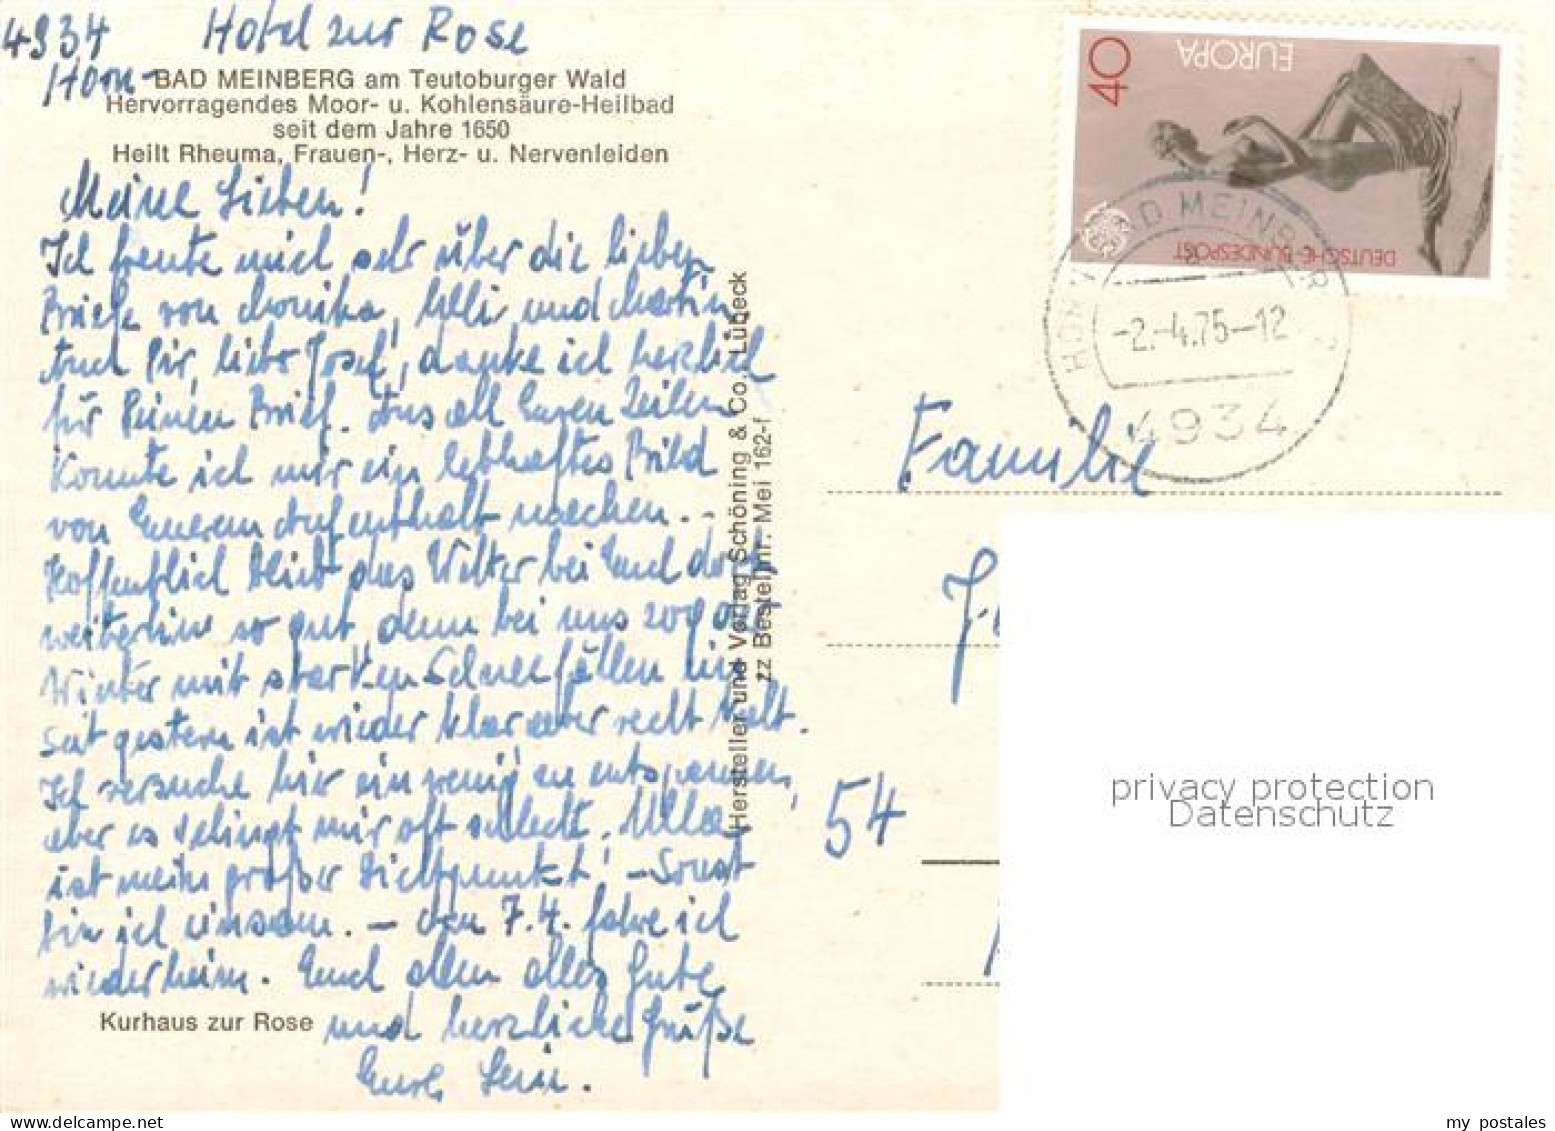 4934 Hotel zur Rose
Horn-BAD MEINBERG am Teutoburger Wald
Hervorragendes Moor- u. Kohlensäure-Heilbad
seit dem Jahre 1650
Heilt Rheuma, Frauen-, Herz- u. Nervenleiden
Meine Lieben!
Ich freute mich sehr über die lieben
Briefe von Monika, Ulli und Martin
Auch Dir, lieber Josef, danke ich herzlich
für Deinen Brief. Aus all Euren Zeilen
konnte ich mir ein lebhaftes Bild
von Eurem Aufenthalt machen. -
Hoffentlich blieb das Wetter bei Euch dort
weiterhin so gut, denn bei uns zog der
Winter mit starken Schneefällen ein
Seit gestern ist wieder klar aber recht kalt.
Ich versuche hier ein wenig zu entspannen,
aber es gelingt mir oft schlecht. Ulla
ist mein großer Lichtpunkt! - Sonst
bin ich einsam. - Den 7.4. fahre ich
wieder heim. Euch allen alles Gute
und herzliche Grüße
Eure Leni.
Kurhaus zur Rose
Hersteller und Verlag Schöning & Co. Lübeck
zz Bestellnr. Mei 162-f
40
EUROPA
DEUTSCHE BUNDESPOST
HORN-BAD MEINBERG
-2.-4.75-12
4934
Familie
54
privacy protection
Datenschutz
my postales